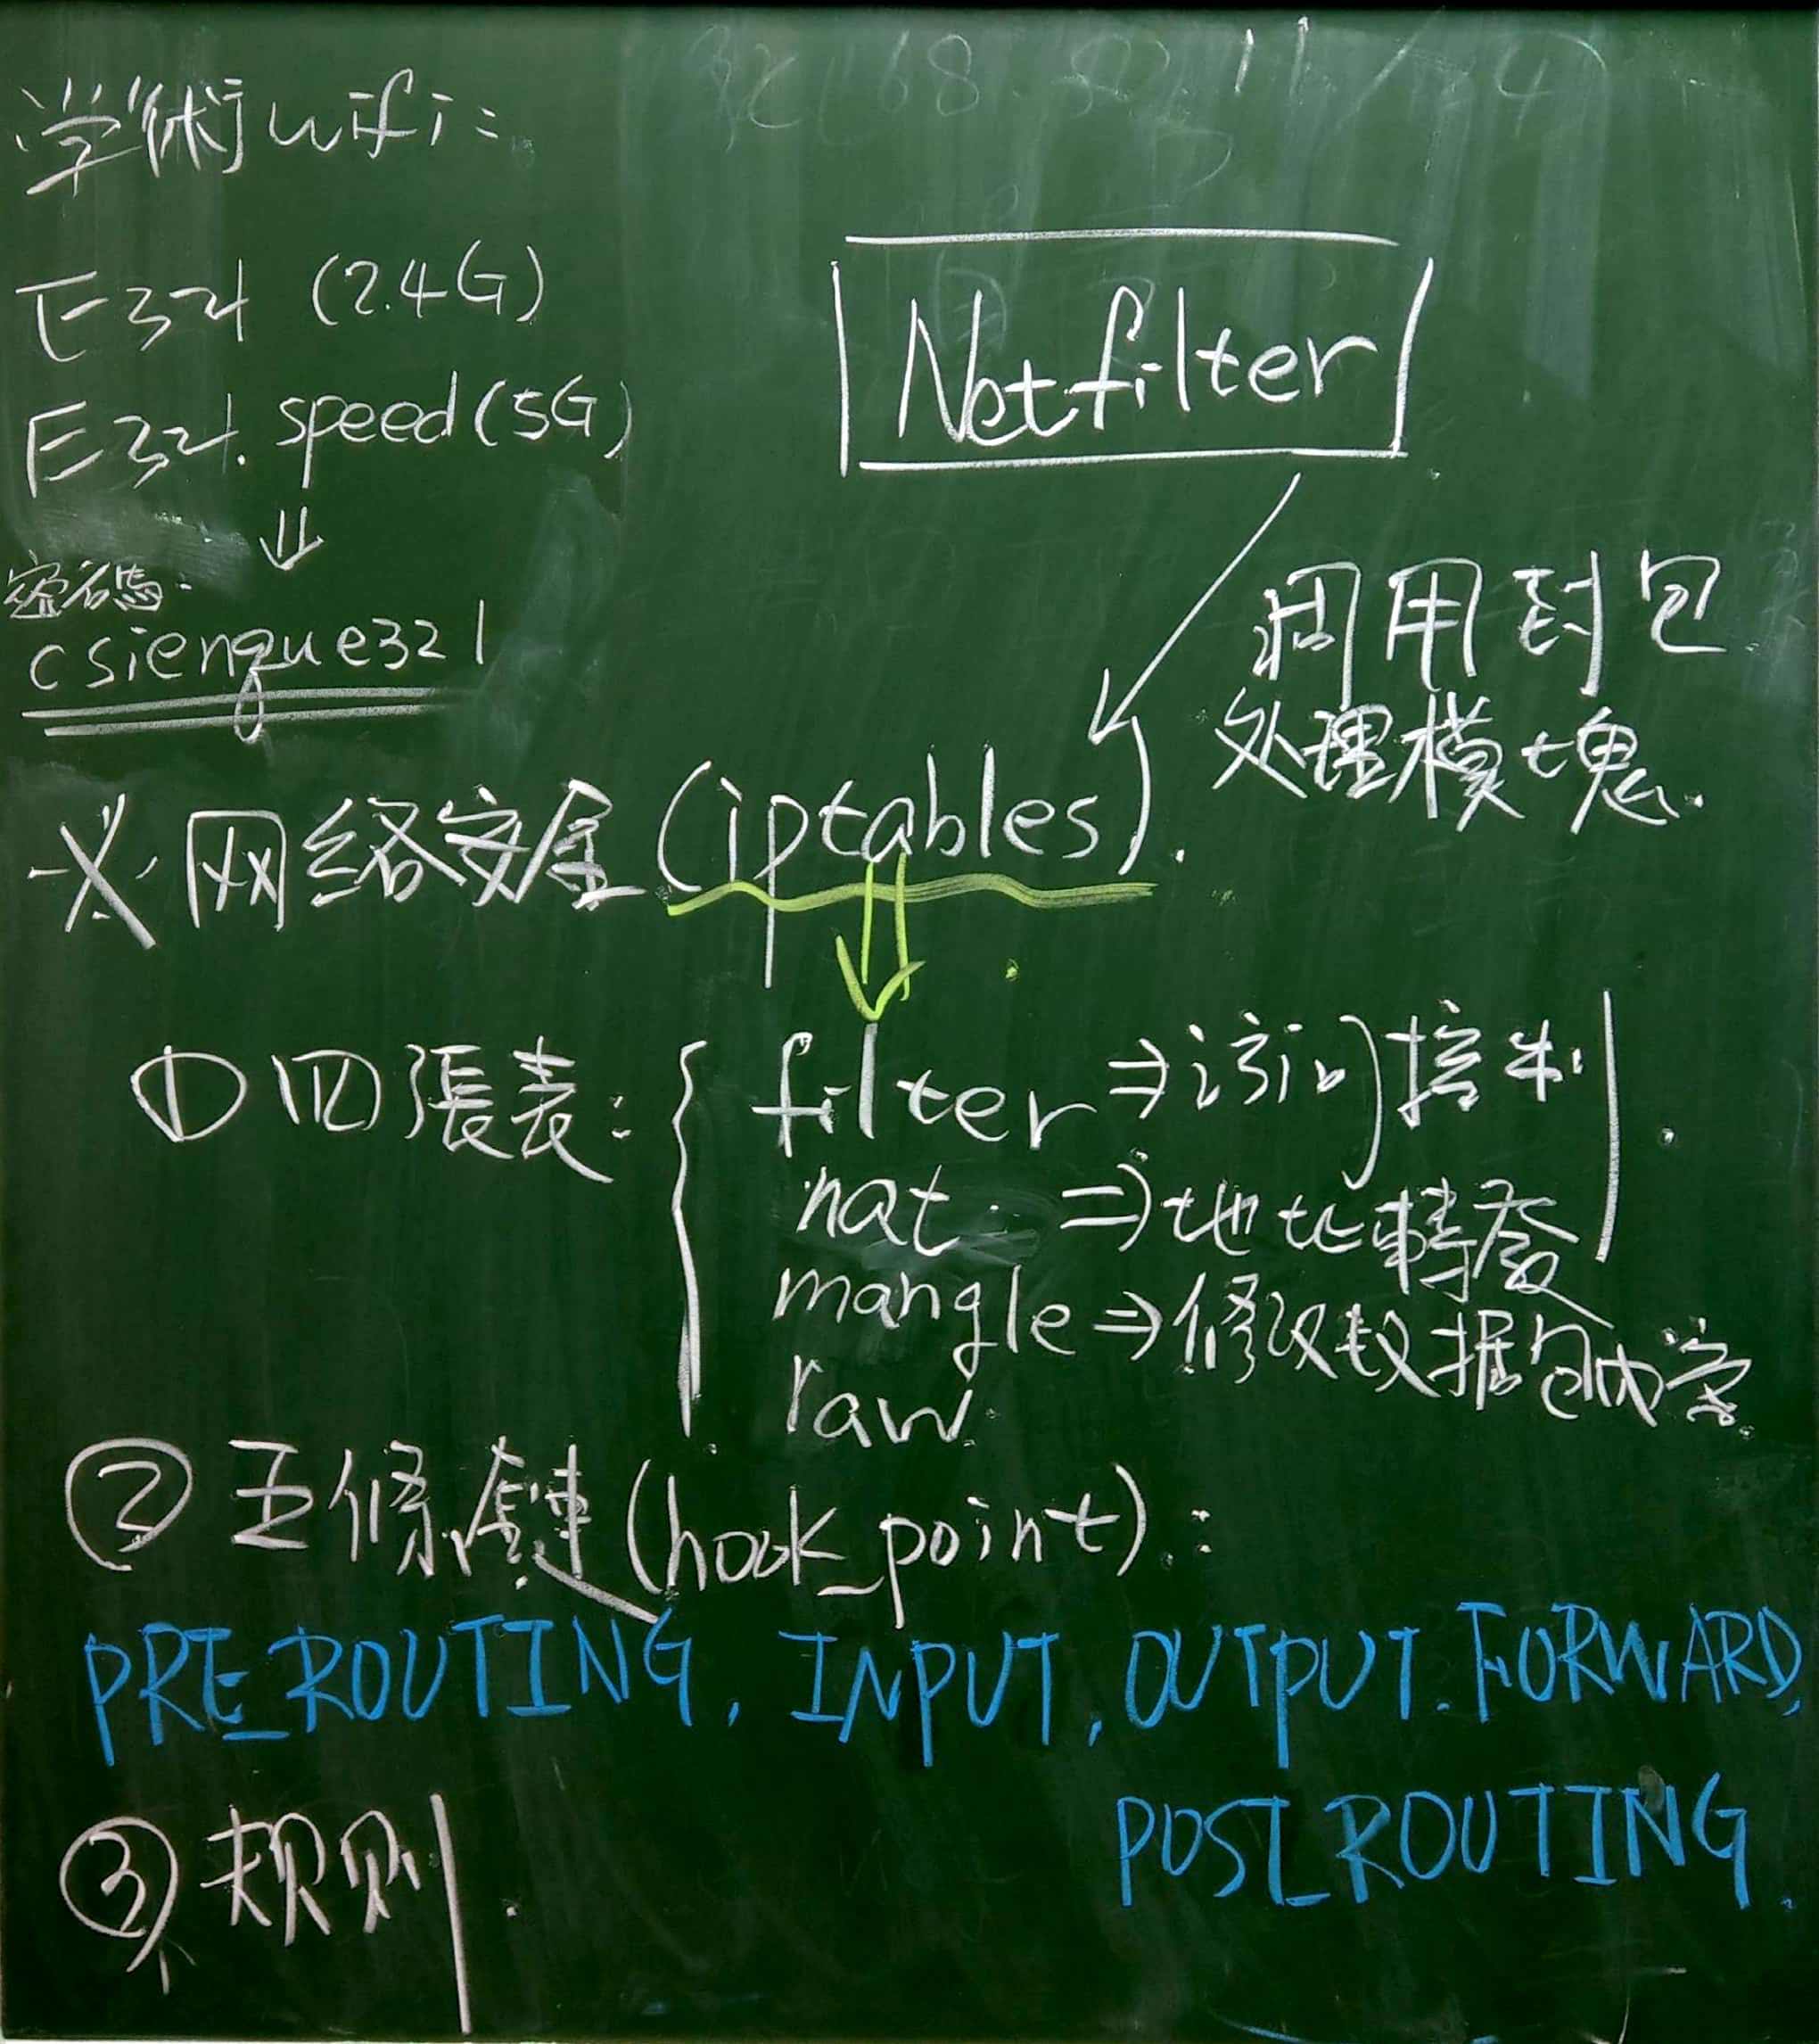 学術wifi:
E321 (2.4G)
E321. speed(5G)
密碼:
csienque321
Netfilter
调用封包
处理模块.
网络安全(iptables).
① 四張表:
filter ⇒ 访问控制.
nat ⇒ 地址轉發
mangle ⇒ 修改数据包内容
raw.
② 五條鏈(hook_point):
PRE_ROUTING, INPUT, OUTPUT. FORWARD,
POST_ROUTING.
③ 规则.